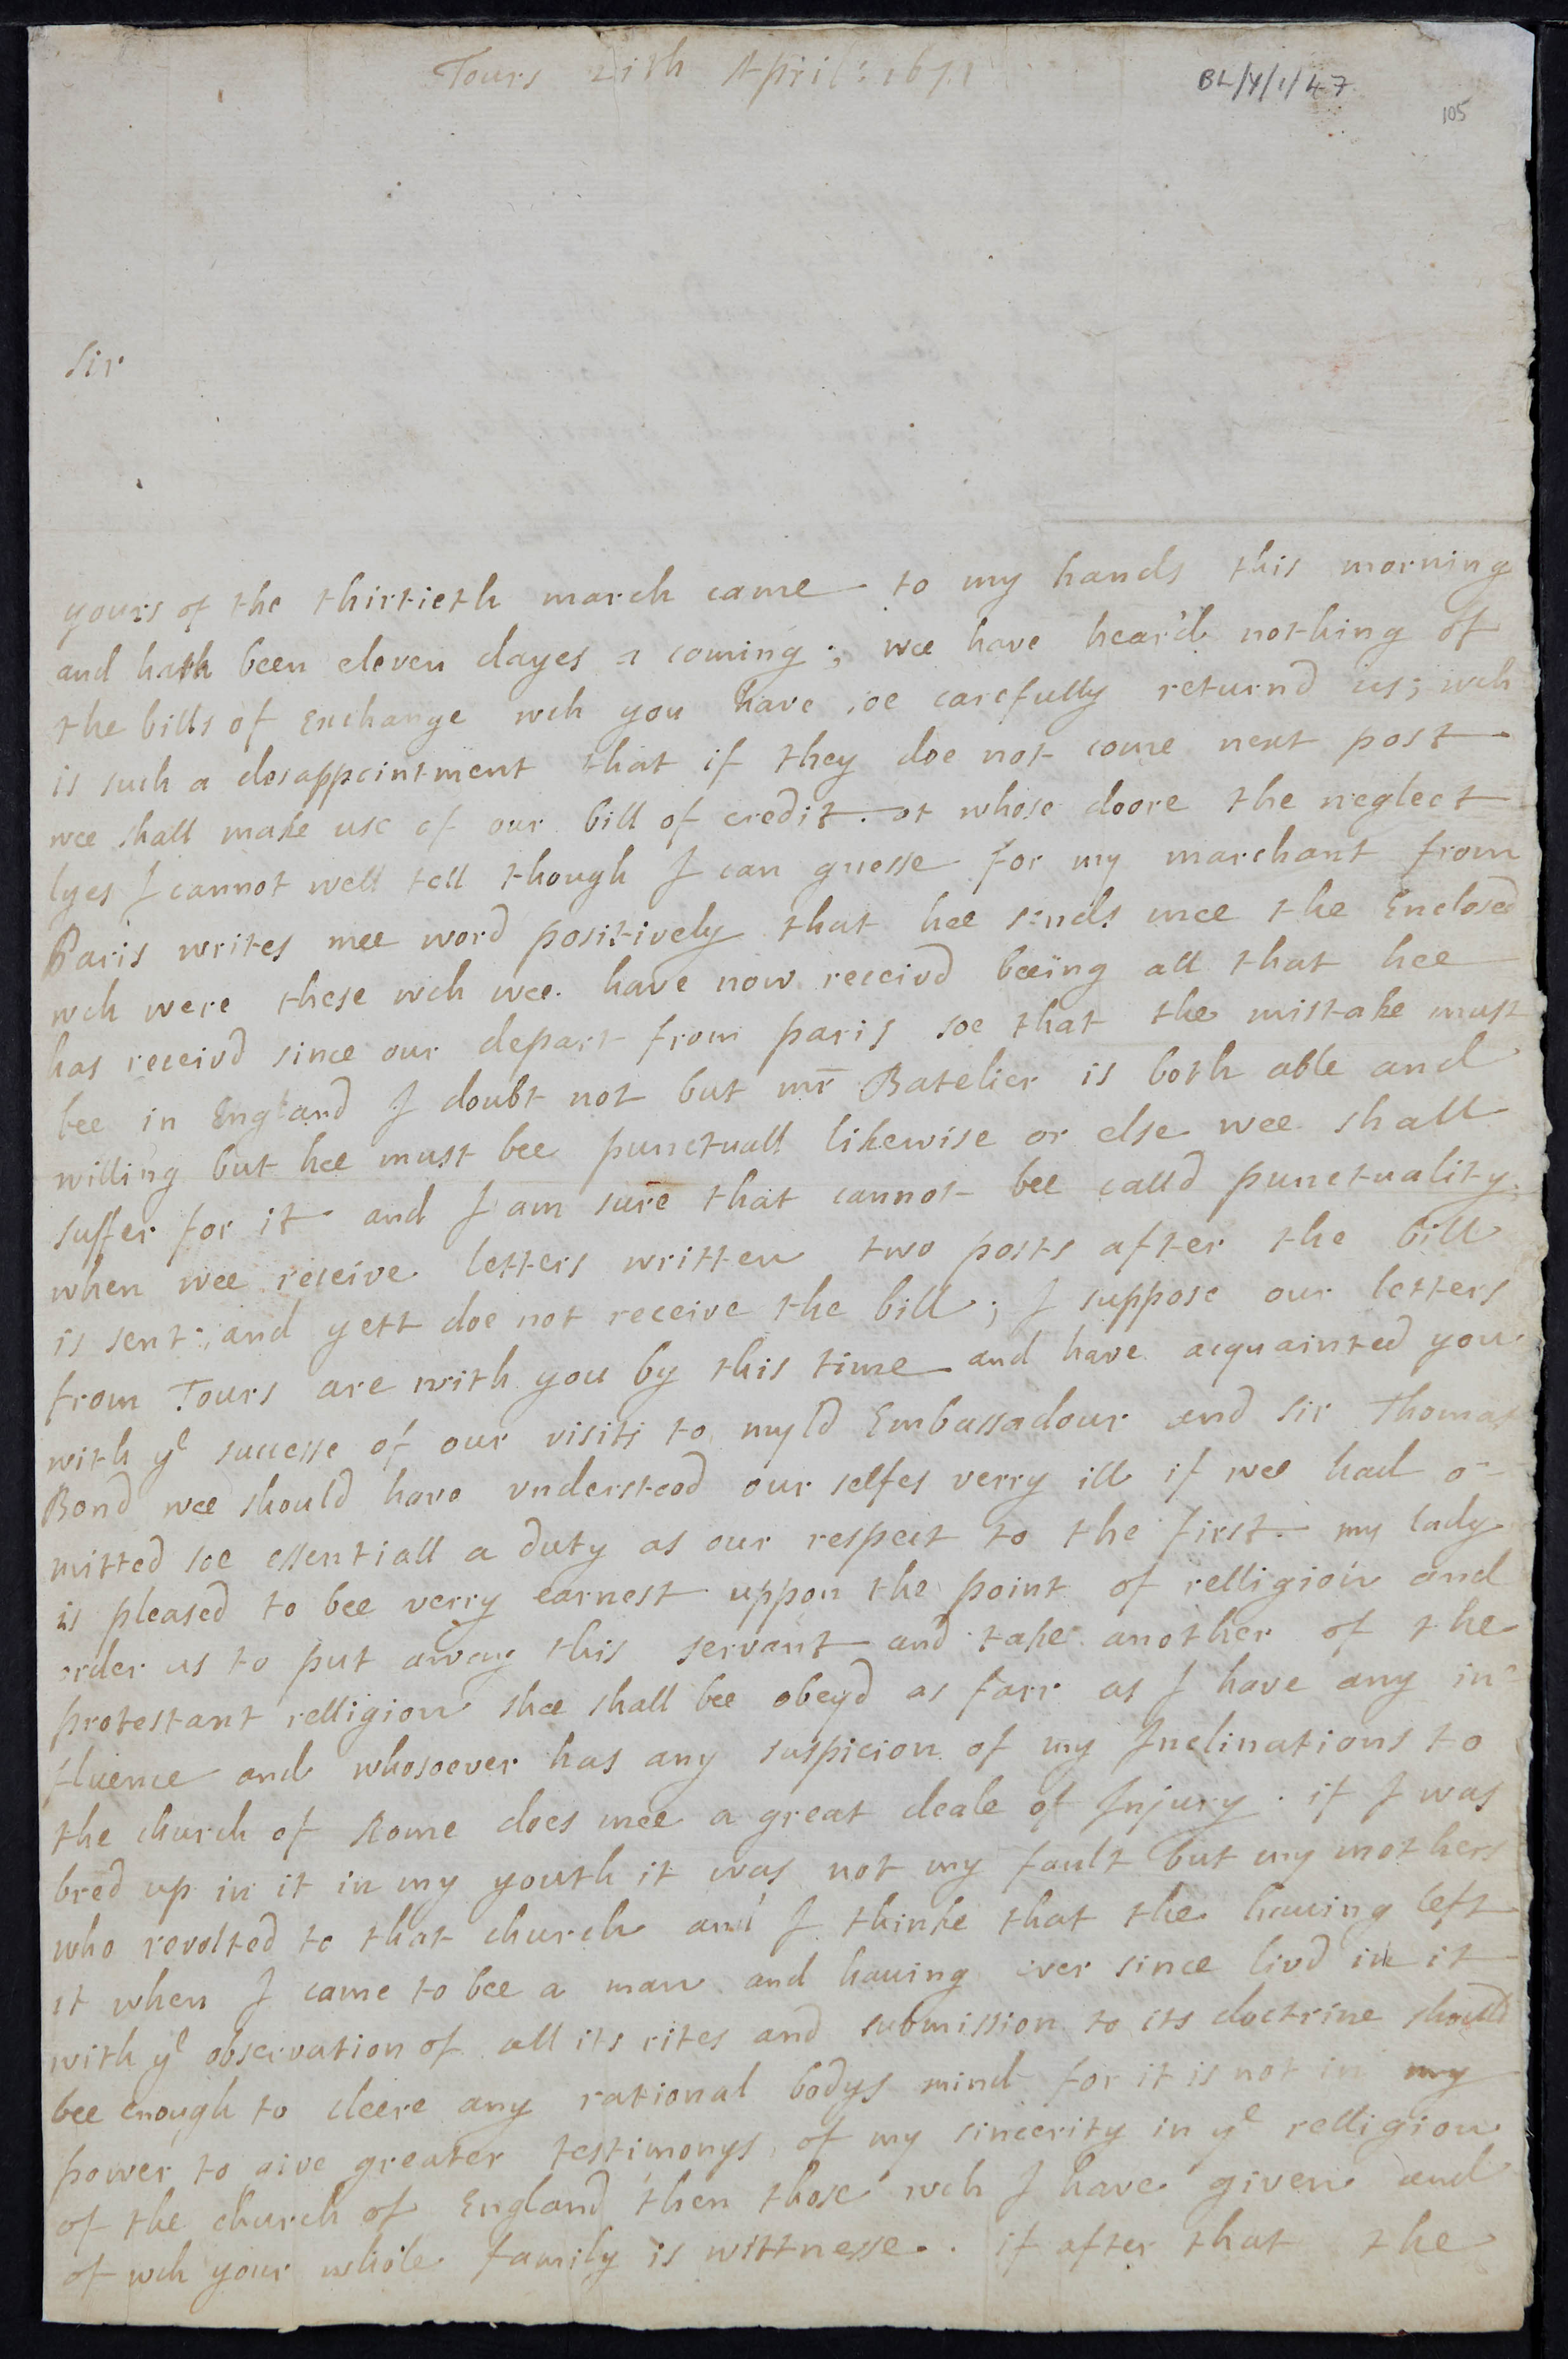 Tours 21th April: 1671
BL/Y/1/47
105
Sir
yours of the thirtieth march came to my hands this morning
and hath been eleven dayes a coming; wee have hear'd nothing of
the bills of Exchange wch you have soe carefully returnd us; wch
is such a desappointment that if they doe not come next post
wee shall make use of our bill of credit. at whose doore the neglect
lyes I cannot well tell though I can guesse for my marchant from
Paris writes mee word positively that hee sends mee the Enclosed
wch were these wch wee have now receivd beeing all that hee
has receivd since our depart from paris soe that the mistake must
bee in England I doubt not but mr Batelier is both able and
willing but hee must bee punctuall likewise or else wee shall
suffer for it and I am sure that cannot bee calld punctuality,
when wee receive letters written two posts after the bill
is sent; and yett doe not receive the bill; I suppose our letters
from Tours are with you by this time and have acquainted you
with ye successe of our visits to myld Embassadour and Sir Thomas
Bond wee should have understood our selfes verry ill if wee had o-
mitted soe essentiall a duty as our respect to the first. my lady
is pleased to bee verry earnest uppon the point of relligion and
order us to put away this servant and take another of the
protestant relligion shee shall bee obeyd as farr as I have any in-
fluence and whosoever has any suspicion of my Inclinations to
the church of Rome does mee a great deale of Injury. if I was
bred up in it in my youth it was not my fault but my mothers
who revolted to that church and I thinke that the having left
it when I came to bee a man and having ever since livd in it
with ye observation of all its rites and submission to its doctrine should
bee enough to cleere any rational bodys mind for it is not in my
power to give greater testimonys of my sincerity in ye relligion
of the church of England then those wch I have given and
of wch your whole family is wittnesse. if after that the